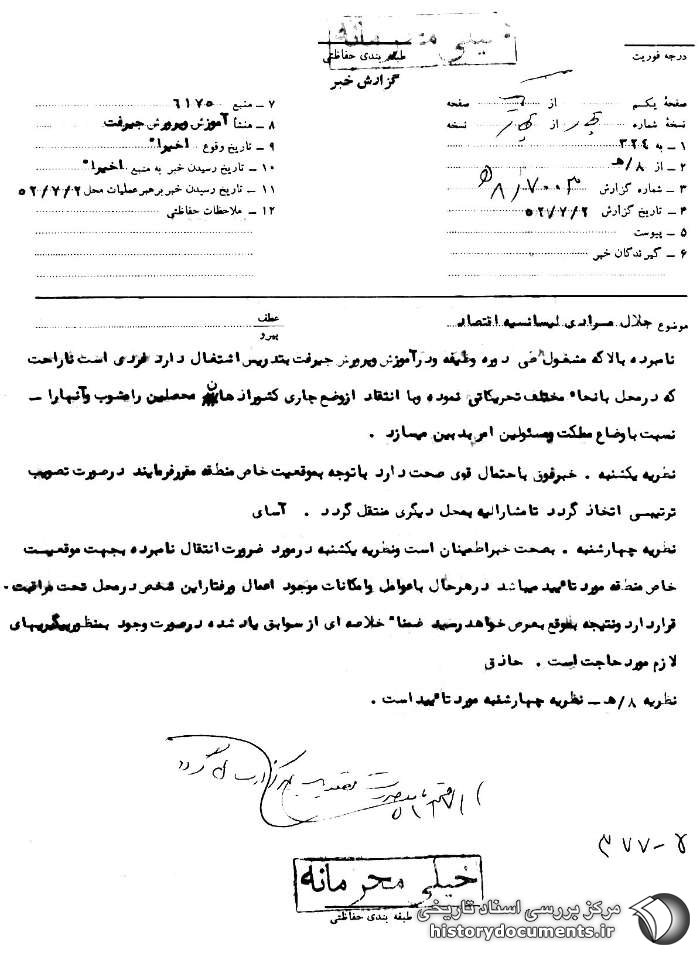 خیلی محرمانه
درجه فوریت
طبقه بندی حفاظتی
گزارش خبر
صفحهٔ یکم از صفحه
نسخهٔ شماره از نسخه
۱ – به ۳۲۴
۲ – از ۸/هـ
۳ – شماره گزارش ۸/۷۰۰۳هـ
۴ – تاریخ گزارش ۵۲/۷/۲
۵ – پیوست
۶ – گیرندگان خبر
۷ – منبع ۶۱۷۵
۸ – منشأ آموزش وپرورش جیرفت
۹ – تاریخ وقوع اخیرا"
۱۰ – تاریخ رسیدن خبر به منبع اخیرا"
۱۱ – تاریخ رسیدن خبر برهبر عملیات محل ۵۲/۷/۲
۱۲ – ملاحظات حفاظتی
موضوع جلال مرادی لیسانسیه اقتصاد
عطف
پیرو
نامبرده بالا که مشغول طی دوره وظیفه ودرآموزش وپرورش جیرفت بتدریس اشتغال دارد فردی است ناراحت
که درمحل بانحاء مختلف تحریکاتی نموده وبا انتقاد ازوضع جاری کشور اذهان محصلین رامشوب وآنهارا –
نسبت باوضاع مملکت ومسئولین امر بدبین میسازد .
نظریه یکشنبه . خبرفوق باحتمال قوی صحت دارد باتوجه بموقعیت خاص منطقه مقررفرمایند درصورت تصویب
ترتیبی اتخاذ گردد تا مشارالیه بمحل دیگری منتقل گردد . آسای
نظریه چهارشنبه . بصحت خبراطمینان است ونظریه یکشنبه درمورد ضرورت انتقال نامبرده بجهت موقعیست
خاص منطقه مورد تائید میباشد درهرحال باعوامل وامکانات موجود اعمال ورفتاراین شخص درمحل تحت مراقبت –
قرار دارد ونتیجه بموقع بعرض خواهد رسید ضمنا" خلاصه ای از سوابق یاد شده درصورت وجود بمنظورپیگیریهای
لازم مورد حاجت است . حاذقی
نظریه ۸/هـ – نظریه چهارشنبه مورد تائید است .
۳۷۷-۵
خیلی محرمانه
طبقه بندی حفاظتی
مرکز بررسی اسناد تاریخی
historydocuments.ir